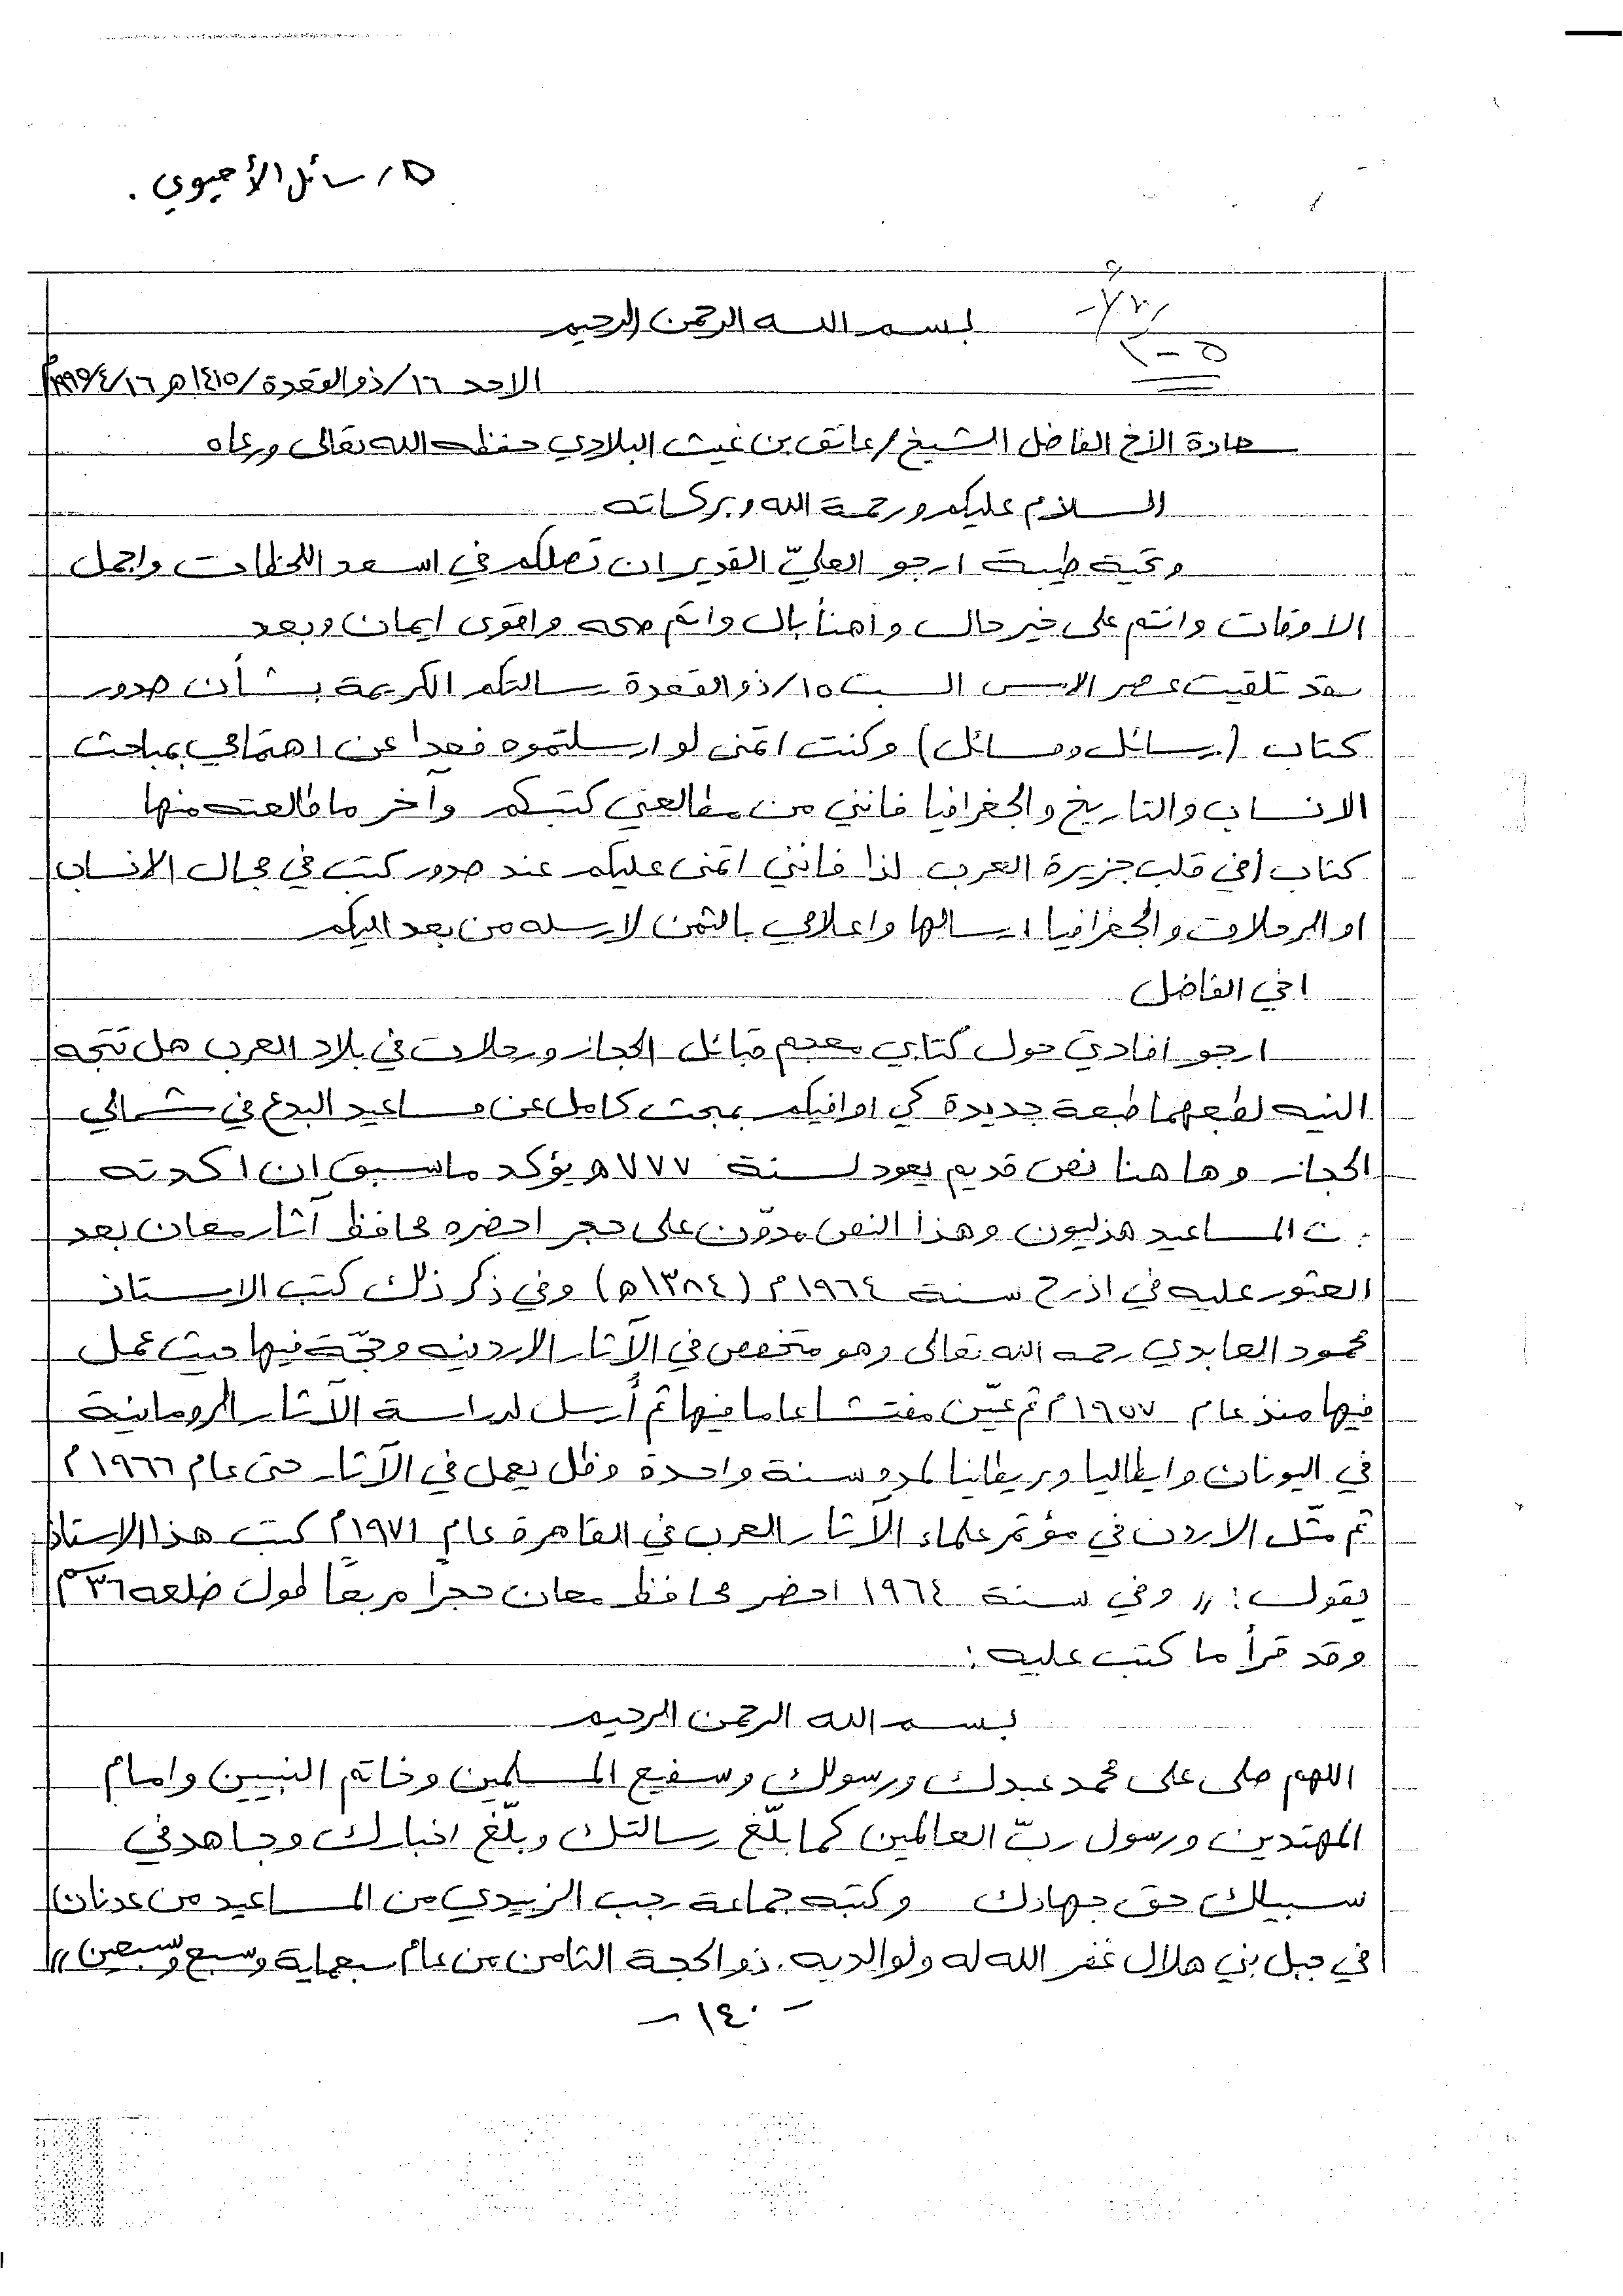 رسائل الأحيوي .
بسم الله الرحمن الرحيم
الاحد ١٦/ذو القعدة/١٤١٥هـ ١٦/٤/١٩٩٥م
سعادة الأخ الفاضل الشيخ/عاتق بن غيث البلادي حفظه الله تعالى ورعاه
السلام عليكم ورحمة الله وبركاته
وتحية طيبة ارجو العليّ القدير ان تصلكم في اسعد اللحظات واجمل
الاوقات وانتم على خير حال واهنأ بال واتم صحه واقوى ايمان وبعد
فقد تلقيت عصر الامس السبت ١٥/ذو القعدة رسالتكم الكريمة بشأن صدور
كتاب (رسائل ومسائل) وكنت اتمنى لو ارسلتموه فعدا عن اهتمامي بمباحث
الانساب والتاريخ والجغرافيا فانني من مطالعي كتبكم وآخر ما طالعته منها
كتاب في قلب جزيرة العرب لذا فانني اتمنى عليكم عند صدور كتب في مجال الانساب
او الرحلات والجغرافيا ارسالها واعلامي بالثمن لارسله من بعد اليكم
اخي الفاضل
ارجو افادتي حول كتابي معجم قبائل الحجاز ورحلات في بلاد العرب هل تتجه
النيه لطبعهما طبعة جديدة كي اوافيكم ببحث كامل عن مساعيد البدع في شمالي
الحجاز وها هنا نص قديم يعود لسنة ٧٧٧هـ يؤكد ما سبق ان اكدته
ان المساعيد هذليون وهذا النص مدوّن على حجر احضره محافظ آثار معان بعد
العثور عليه في اذرح سنة ١٩٦٤م (١٣٨٤هـ) وفي ذكر ذلك كتب الاستاذ
محمود العابدي رحمه الله تعالى وهو متخصص في الآثار الاردنيه وحجّة فيها حيث عمل
فيها منذ عام ١٩٥٧م ثم عيّن مفتشا عاما فيها ثم أرسل لدراسة الآثار الرومانية
في اليونان وايطاليا وبريطانيا لمده سنة واحدة وظل يعمل في الآثار حتى عام ١٩٦٦م
ثم مثّل الاردن في مؤتمر علماء الآثار العرب في القاهرة عام ١٩٧١م كتب هذا الاستاذ
يقول: "وفي سنة ١٩٦٤ احضر محافظ معان حجراً مربعاً طول ضلعه ٣٦سم
وقد قرأ ما كتب عليه:
بسم الله الرحمن الرحيم
اللهم صلى على محمد عبدك ورسولك وسفيع المسلمين وخاتم النبيين وامام
المهتدين ورسول ربّ العالمين كما بلّغ رسالتك وبلّغ اخبارك وجاهد في
سبيلك حق جهادك وكتبه جماعة رجب الزبيدي من المساعيد من عدنان
في جبل بني هلال غفر الله له ولوالديه. ذو الحجة الثامن من عام سبعماية وسبع وسبعين"
- ١٤٠ -